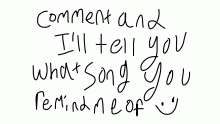 comment and
I'll tell you
what song you
remind me of :)